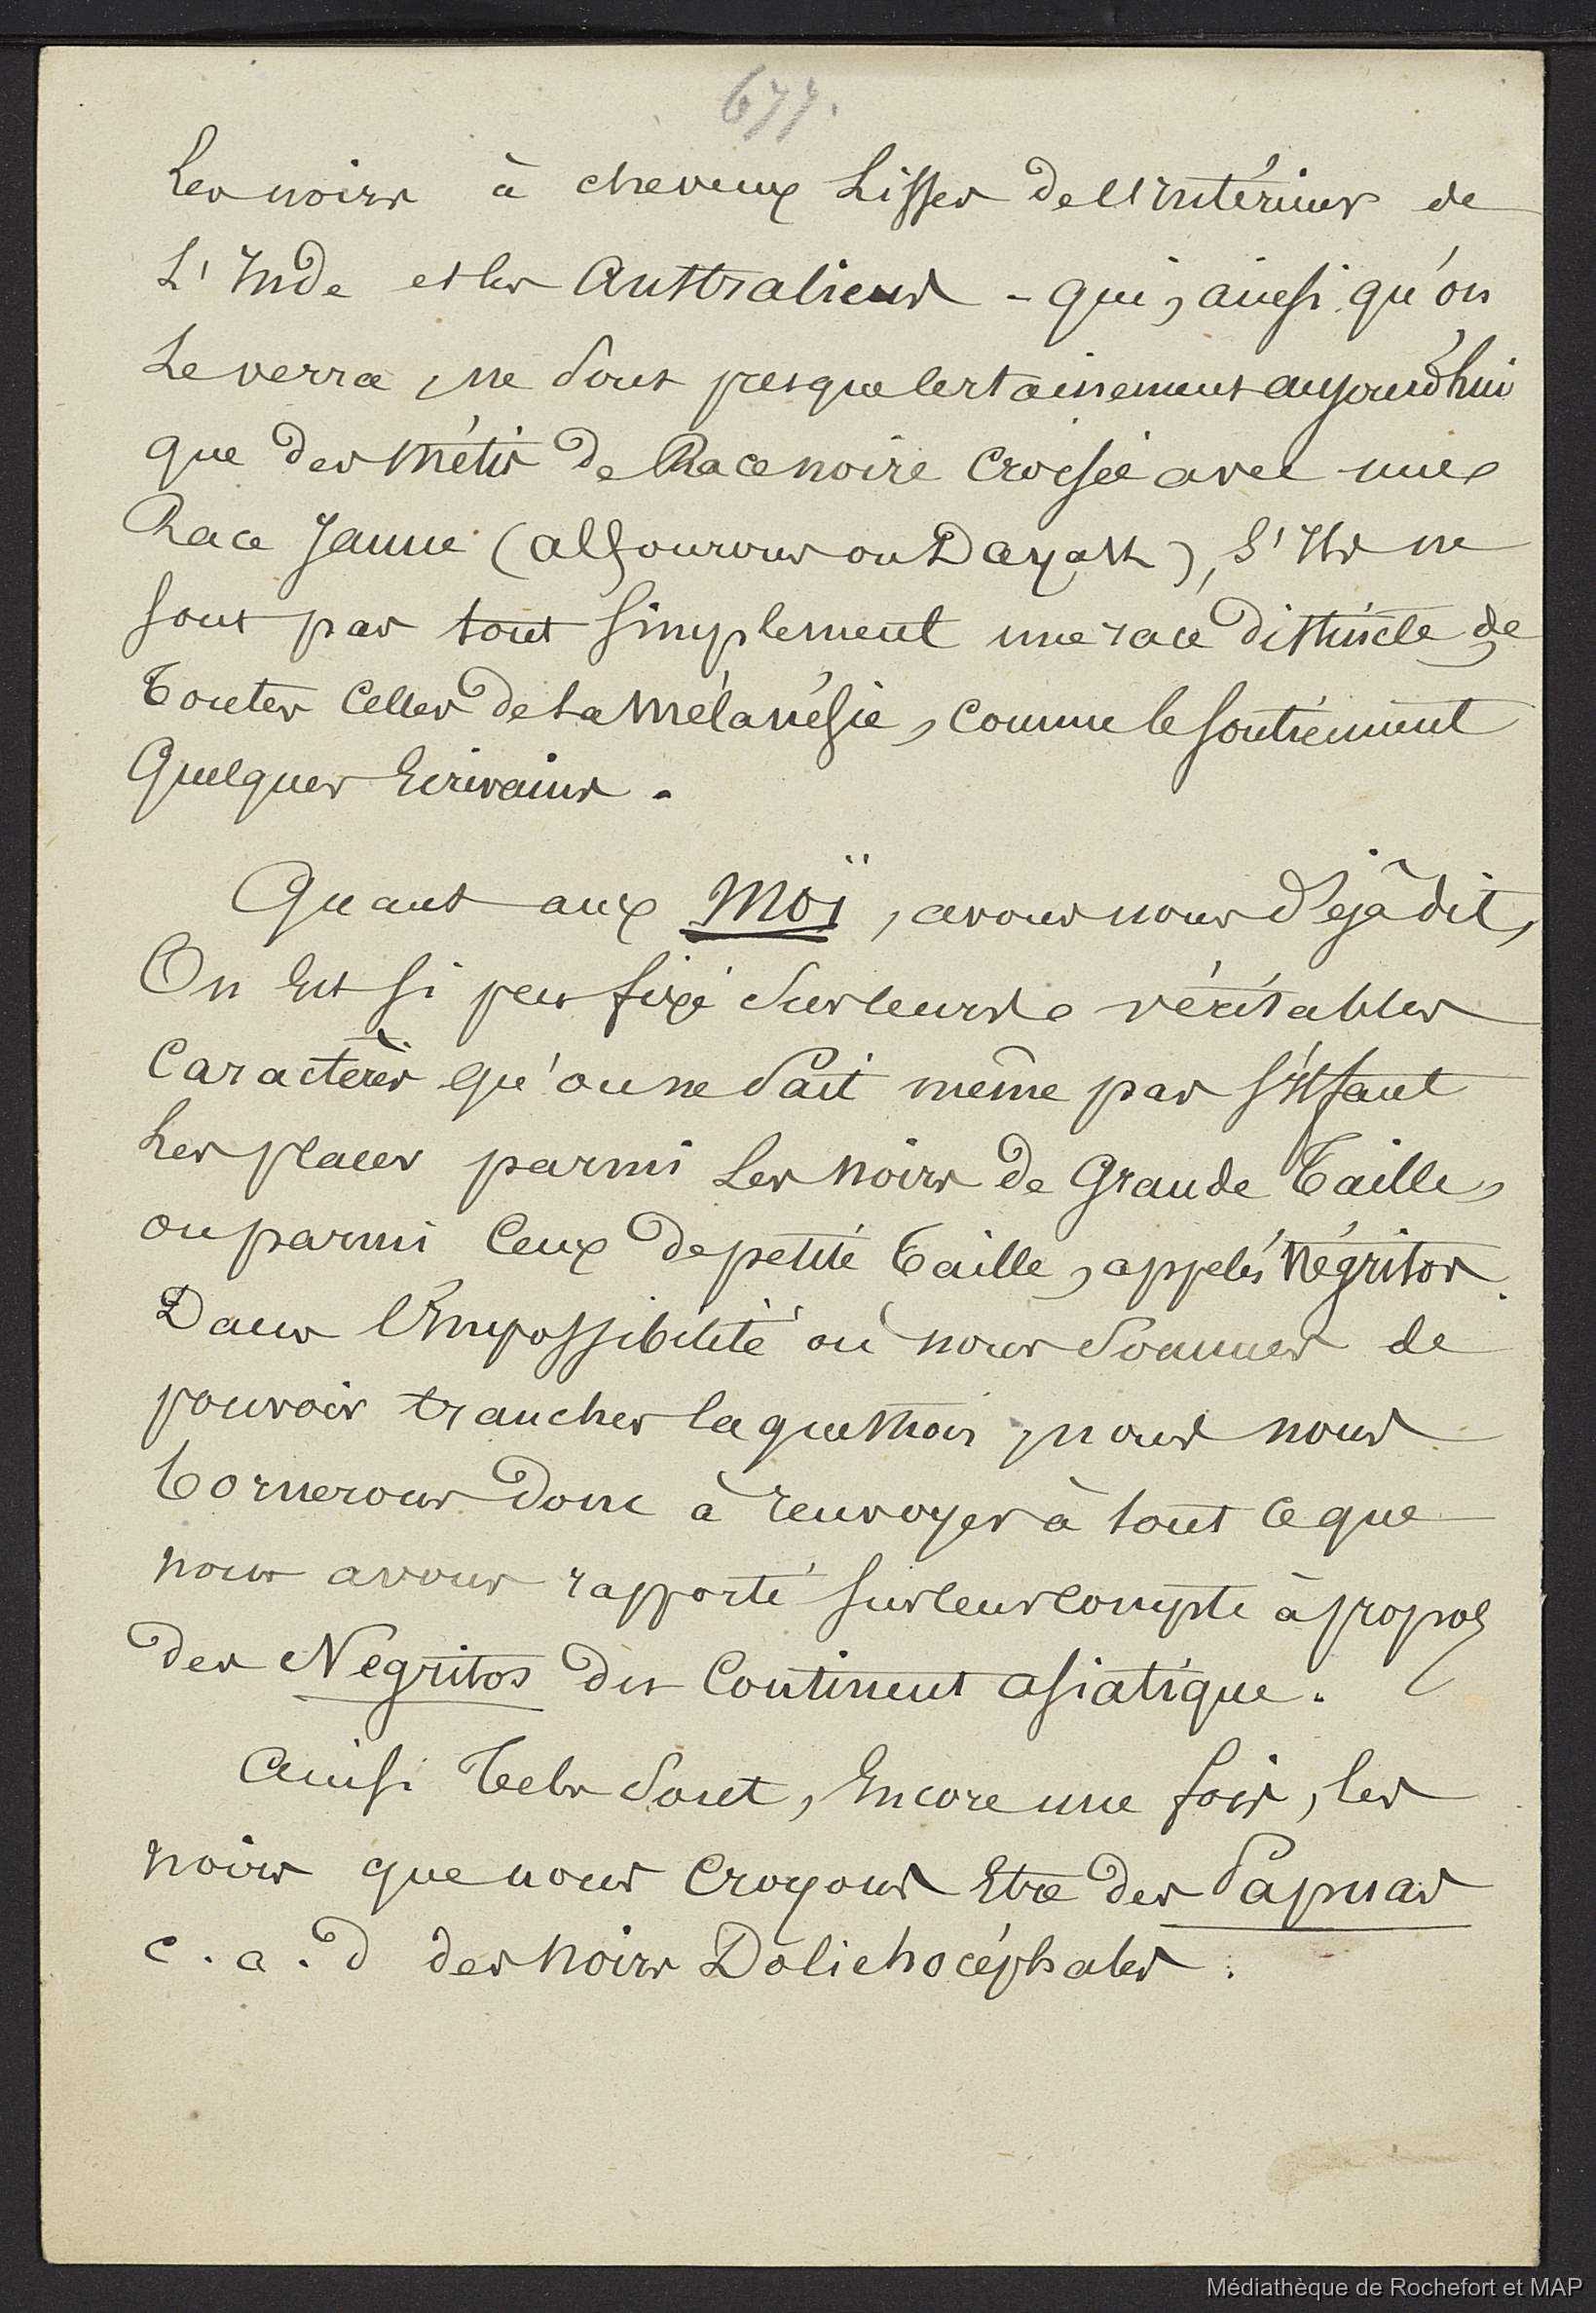 677.
Les noirs à cheveux Lisses de l'Intérieur de
L'Inde et les Australiens - qui, ainsi qu'on
Le verra, ne sont presque certainement aujourd'hui
que des métis de Race noire croisée avec une
Race Jaune (alfourous ou Dayak), S'Ils ne
sont pas tout simplement une race distincte de
Toutes Celles de La Mélanésie, comme le soutiennent
Quelques Ecrivains.
Quant aux Moï, avons nous déjà dit,
On Est si peu fixé sur leurs véritables
Caractères qu'on ne sait même pas s'Il faut
Les placer parmi Les noirs de Grande Taille,
ou parmi Ceux de petite Taille, appelés Négritos.
Dans l'Impossibilité où nous sommes de
pouvoir trancher la question, nous nous
bornerons donc à renvoyer à tout ce que
nous avons rapporté sur leur compte à propos
des Négritos du Continent asiatique.
Ainsi Tels sont, Encore une fois, les
noirs que nous Croyons Etre des Papuas
c.a.d des noirs Dolichocéphales.
Médiathèque de Rochefort et MAP